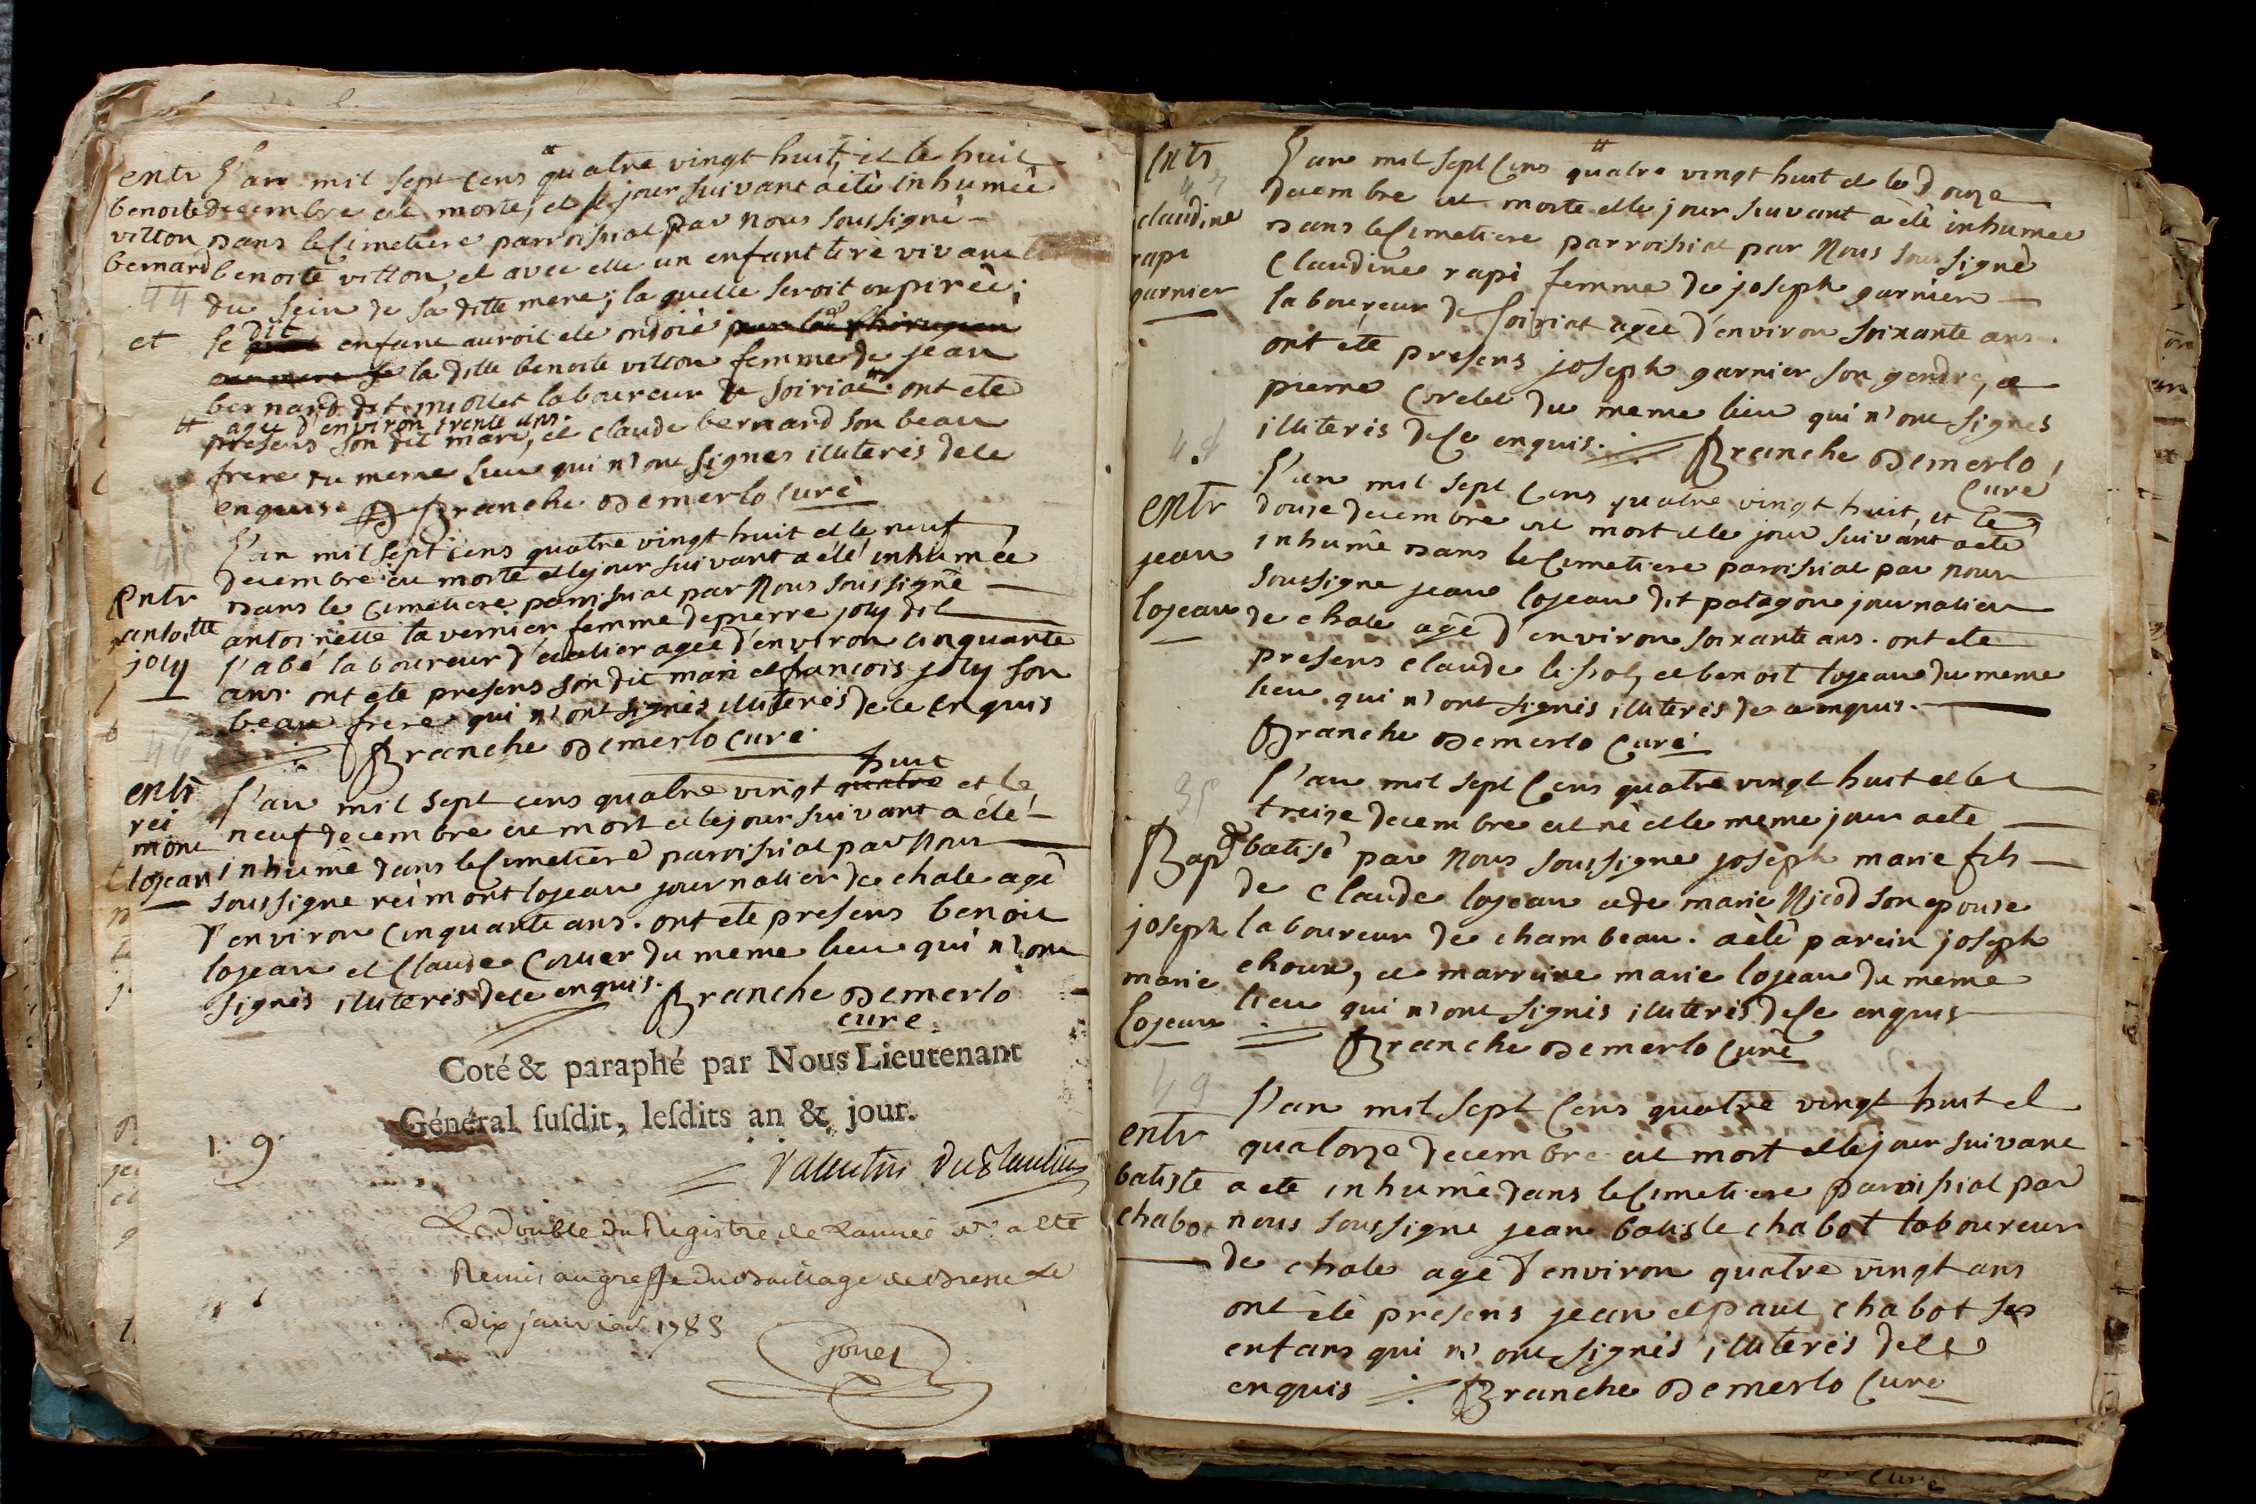 entr
benoite
vitton
bernard
44
et
L'an mil sept cens quatre vingt huit, et le huit
decembre est morte, et le jour suivant a été inhumée
dans le Cimetiere parroissial par nous soussigné
benoite vitton, et avec elle un enfant tiré vivant
du sein de sa ditte mere; la quelle seroit expirée;
le dit enfant auroit ete ondoié
la ditte benoite vitton femme de jean
bernard dit miollet laboureur de soiriat # ont ete
# agee d'environ trente ans.
presens son dit mari, et claude bernard son beau
frere du meme lieu qui n'ont signés illiterés de ce
enquis. Branche Demerlo curé
45
entr
antoinette
joly
L'an mil sept cens quatre vingt huit et le neuf
decembre est morte et le jour suivant a été inhumée
dans le cimetiere paroissial par nous soussigné
antoinette tavernier femme de pierre joly dit
l'abé laboureur d' agée d'environ cinquante
ans. ont ete presens son dit mari et francois joly son
beau frere qui n'ont signés illiterés de ce enquis
Branche Demerlo curé
46
entr
rei
mont
lojean
L'an mil sept cens quatre vingt quatre huit et le
neuf decembre est mort et le jour suivant a été
inhumé dans le Cimetiere paroissial par nous
soussigne reimont lojean journalier de chale agé
d'environ cinquante ans. ont ete presens benoit
lojean et Claude du meme lieu qui n'ont
signés illiterés de ce enquis. Branche Demerlo
curé.
Coté & paraphé par Nous Lieutenant
Général susdit, lesdits an & jour.
9
Valentin Duplantier
Le double du Registre de l'année a été
Remis au greffe du Bailliage de Bresse le
dix janvier 1788
entr
47
claudine
rapi
garnier
L'an mil sept Cens quatre vingt huit et le Douze
decembre est morte et le jour suivant a été inhumée
dans le Cimetiere parroissial par Nous soussigné
Claudine rapi femme de joseph garnier
laboureur de soiriat agée d'environ soixante ans.
ont été presens joseph garnier son gendre, et
pierre Coretet du meme lieu qui n'ont signés
illiterés de ce enquis. Branche Demerlo
Curé
48
entr
jean
lojean
L'an mil sept Cens quatre vingt huit, et le
douze decembre est mort et le jour suivant a ete
inhumé dans le Cimetiere paroissial par nous
soussigne jean lojean dit patagon journalier
de chale agé d'environ soixante ans. ont ete
presens claude et benoit lojean du meme
lieu qui n'ont signés illiterés de ce enquis.
Branche Demerlo Curé
35
Bap
joseph
marie
lojean
L'an mil sept Cens quatre vingt huit et le
treize decembre est né et le meme jour a ete
batisé par Nous soussigne joseph marie fils
de claude lojean et de marie Niod son epouse
laboureur de chambeau. a été parein joseph
choux, et marreine marie lojean du meme
lieu qui n'ont signés illiterés de ce enquis
Branche Demerlo Curé
49
entr
batiste
chabot
L'an mil sept Cens quatre vingt huit et
quatorze decembre est mort et le jour suivant
a ete inhumé dans le Cimetiere paroissial par
nous soussigne jean batiste chabot laboureur
de chale agé d'environ quatre vingt ans
ont été presens jean et paul chabot ses
enfans qui n'ont signés illiterés de ce
enquis Branche Demerlo Curé